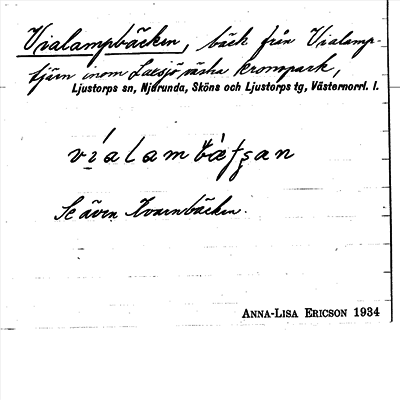 Vialampbäcken, bäck från Vialamp-
tjärn inom Laxsjö västra kronopark,
Ljustorps sn, Njurunda, Sköns och Ljustorps tg, Västernorrl. l.
Se även Kvarnbäcken.
ANNA-LISA ERICSON 1934